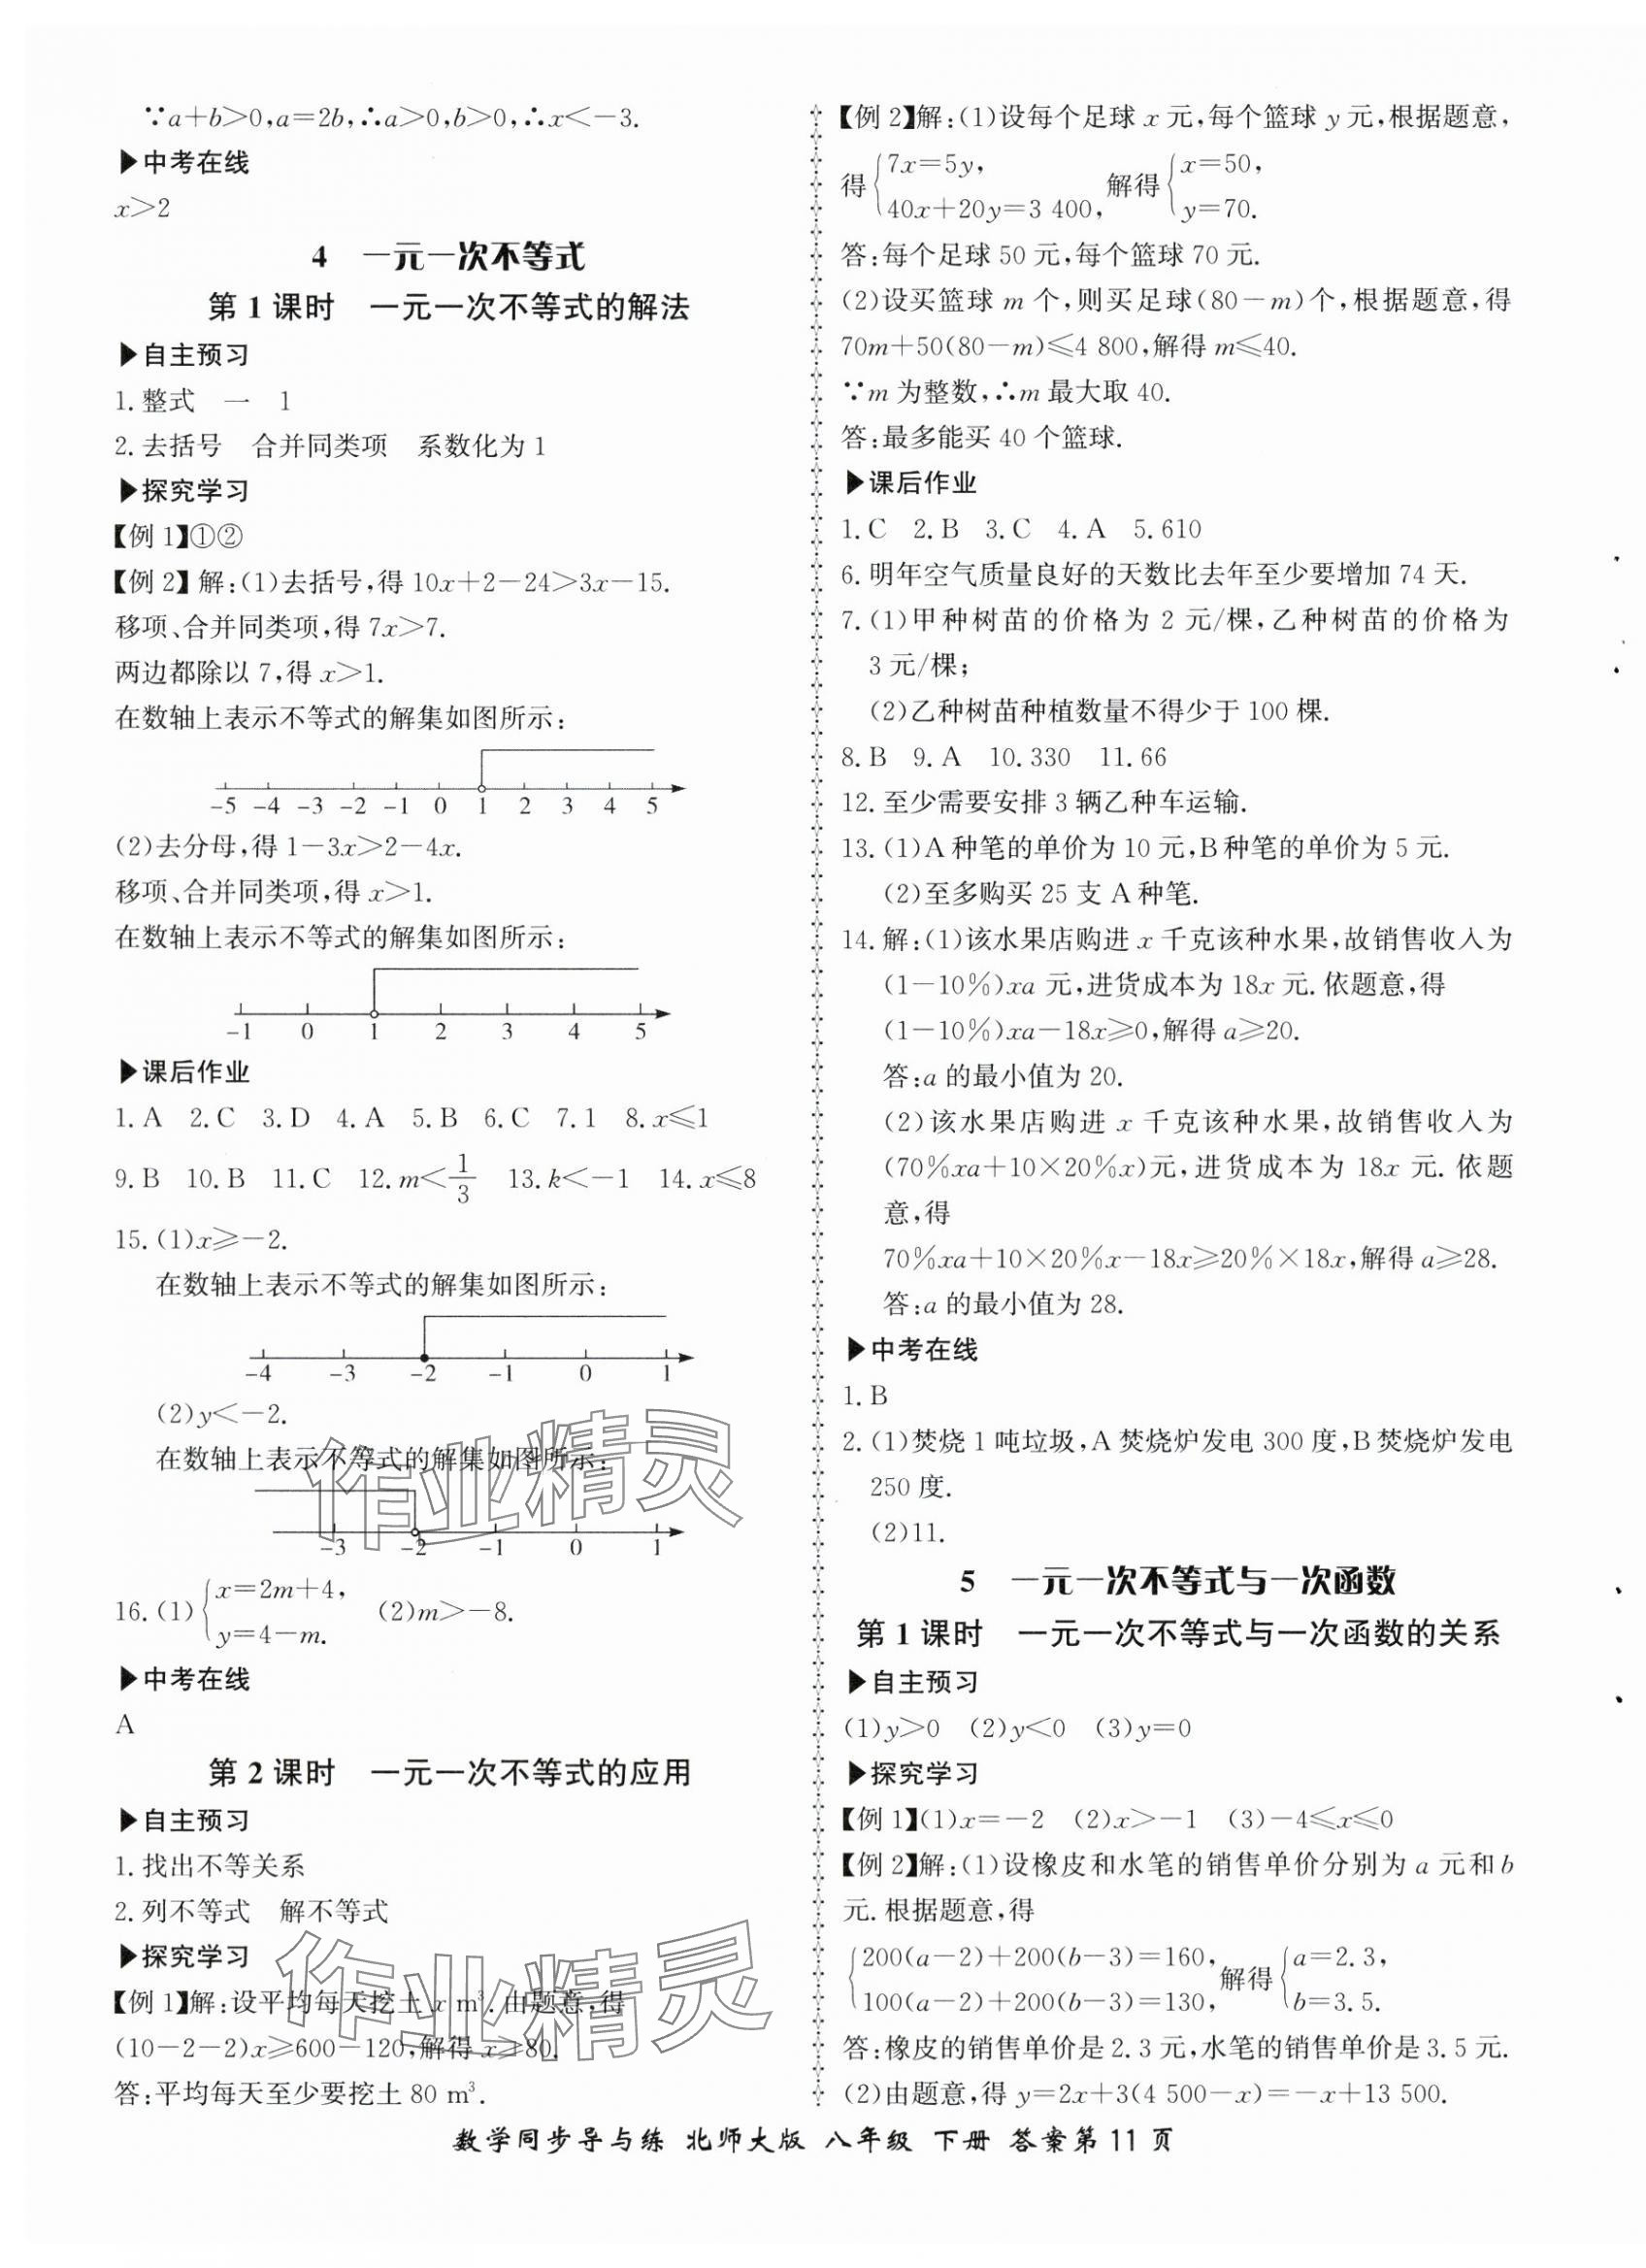 ∵a+b>0,a=2b,∴a>0,b>0,∴x<-3.
▶中考在线
x>2
4　一元一次不等式
第1课时　一元一次不等式的解法
▶自主预习
1.整式　一　1
2.去括号　合并同类项　系数化为1
▶探究学习
【例1】①②
【例2】解:(1)去括号,得10x+2-24>3x-15.
移项、合并同类项,得7x>7.
两边都除以7,得x>1.
在数轴上表示不等式的解集如图所示:
-5 -4 -3 -2 -1 0 1 2 3 4 5
(2)去分母,得1-3x>2-4x.
移项、合并同类项,得x>1.
在数轴上表示不等式的解集如图所示:
-1 0 1 2 3 4 5
▶课后作业
1.A 2.C 3.D 4.A 5.B 6.C 7.1 8.x≤1
9.B 10.B 11.C 12.m<1/3 13.k<-1 14.x≤8
15.(1)x≥-2.
在数轴上表示不等式的解集如图所示:
-4 -3 -2 -1 0 1
(2)y<-2.
在数轴上表示不等式的解集如图所示:
-3 -2 -1 0 1
16.(1){x=2m+4, y=4-m. (2)m>-8.
▶中考在线
A
第2课时　一元一次不等式的应用
▶自主预习
1.找出不等关系
2.列不等式　解不等式
▶探究学习
【例1】解:设平均每天挖土x m³.由题意,得
(10-2-2)x≥600-120,解得x≥80.
答:平均每天至少要挖土80 m³.
【例2】解:(1)设每个足球x元,每个篮球y元,根据题意,
得{7x=5y, 40x+20y=3 400, 解得{x=50, y=70.
答:每个足球50元,每个篮球70元.
(2)设买篮球m个,则买足球(80-m)个,根据题意,得
70m+50(80-m)≤4 800,解得m≤40.
∵m为整数,∴m最大取40.
答:最多能买40个篮球.
▶课后作业
1.C 2.B 3.C 4.A 5.610
6.明年空气质量良好的天数比去年至少要增加74天.
7.(1)甲种树苗的价格为2元/棵,乙种树苗的价格为
3元/棵;
(2)乙种树苗种植数量不得少于100棵.
8.B 9.A 10.330 11.66
12.至少需要安排3辆乙种车运输.
13.(1)A种笔的单价为10元,B种笔的单价为5元.
(2)至多购买25支A种笔.
14.解:(1)该水果店购进x千克该种水果,故销售收入为
(1-10%)xa元,进货成本为18x元.依题意,得
(1-10%)xa-18x≥0,解得a≥20.
答:a的最小值为20.
(2)该水果店购进x千克该种水果,故销售收入为
(70%xa+10×20%x)元,进货成本为18x元.依题
意,得
70%xa+10×20%x-18x≥20%×18x,解得a≥28.
答:a的最小值为28.
▶中考在线
1.B
2.(1)焚烧1吨垃圾,A焚烧炉发电300度,B焚烧炉发电
250度.
(2)11.
5　一元一次不等式与一次函数
第1课时　一元一次不等式与一次函数的关系
▶自主预习
(1)y>0 (2)y<0 (3)y=0
▶探究学习
【例1】(1)x=-2 (2)x>-1 (3)-4≤x≤0
【例2】解:(1)设橡皮和水笔的销售单价分别为a元和b
元.根据题意,得
{200(a-2)+200(b-3)=160, 100(a-2)+200(b-3)=130, 解得{a=2.3, b=3.5.
答:橡皮的销售单价是2.3元,水笔的销售单价是3.5元.
(2)由题意,得y=2x+3(4 500-x)=-x+13 500.
数学同步导与练 北师大版 八年级 下册 答案第11页
作业精灵
作业精灵